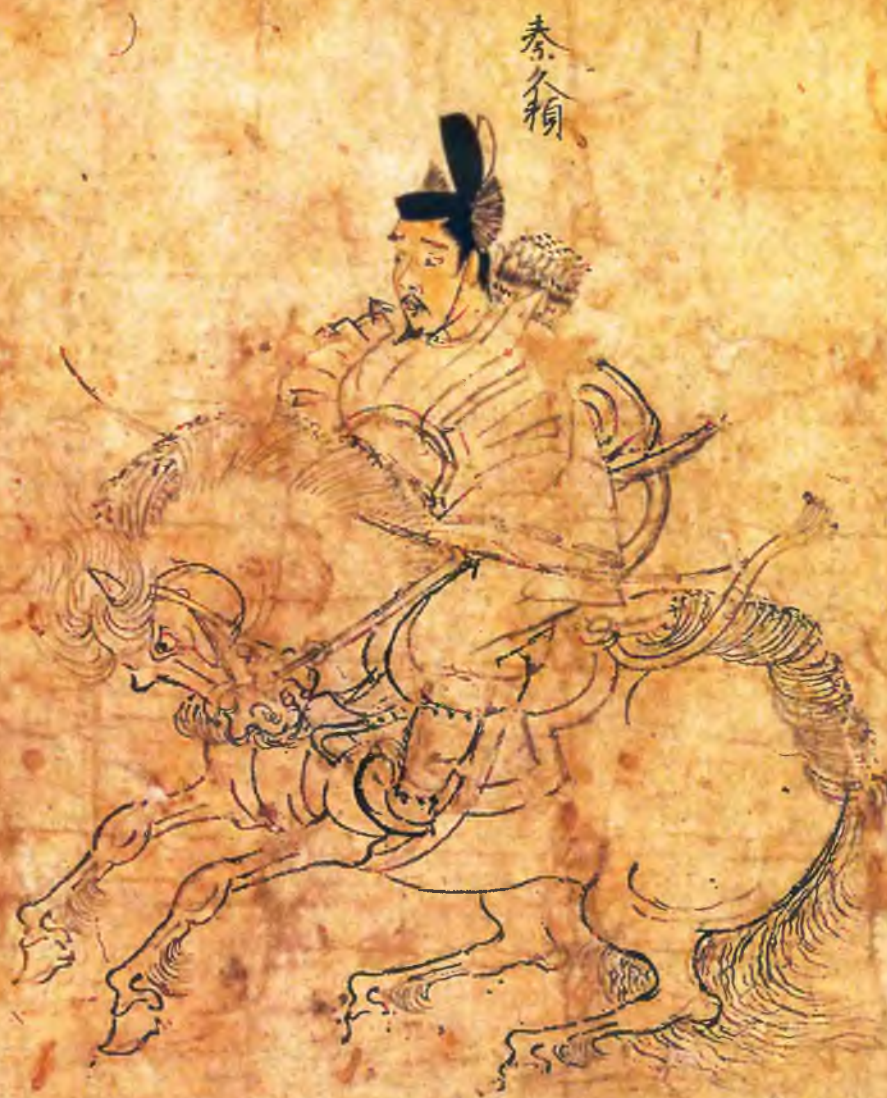 秦久頼